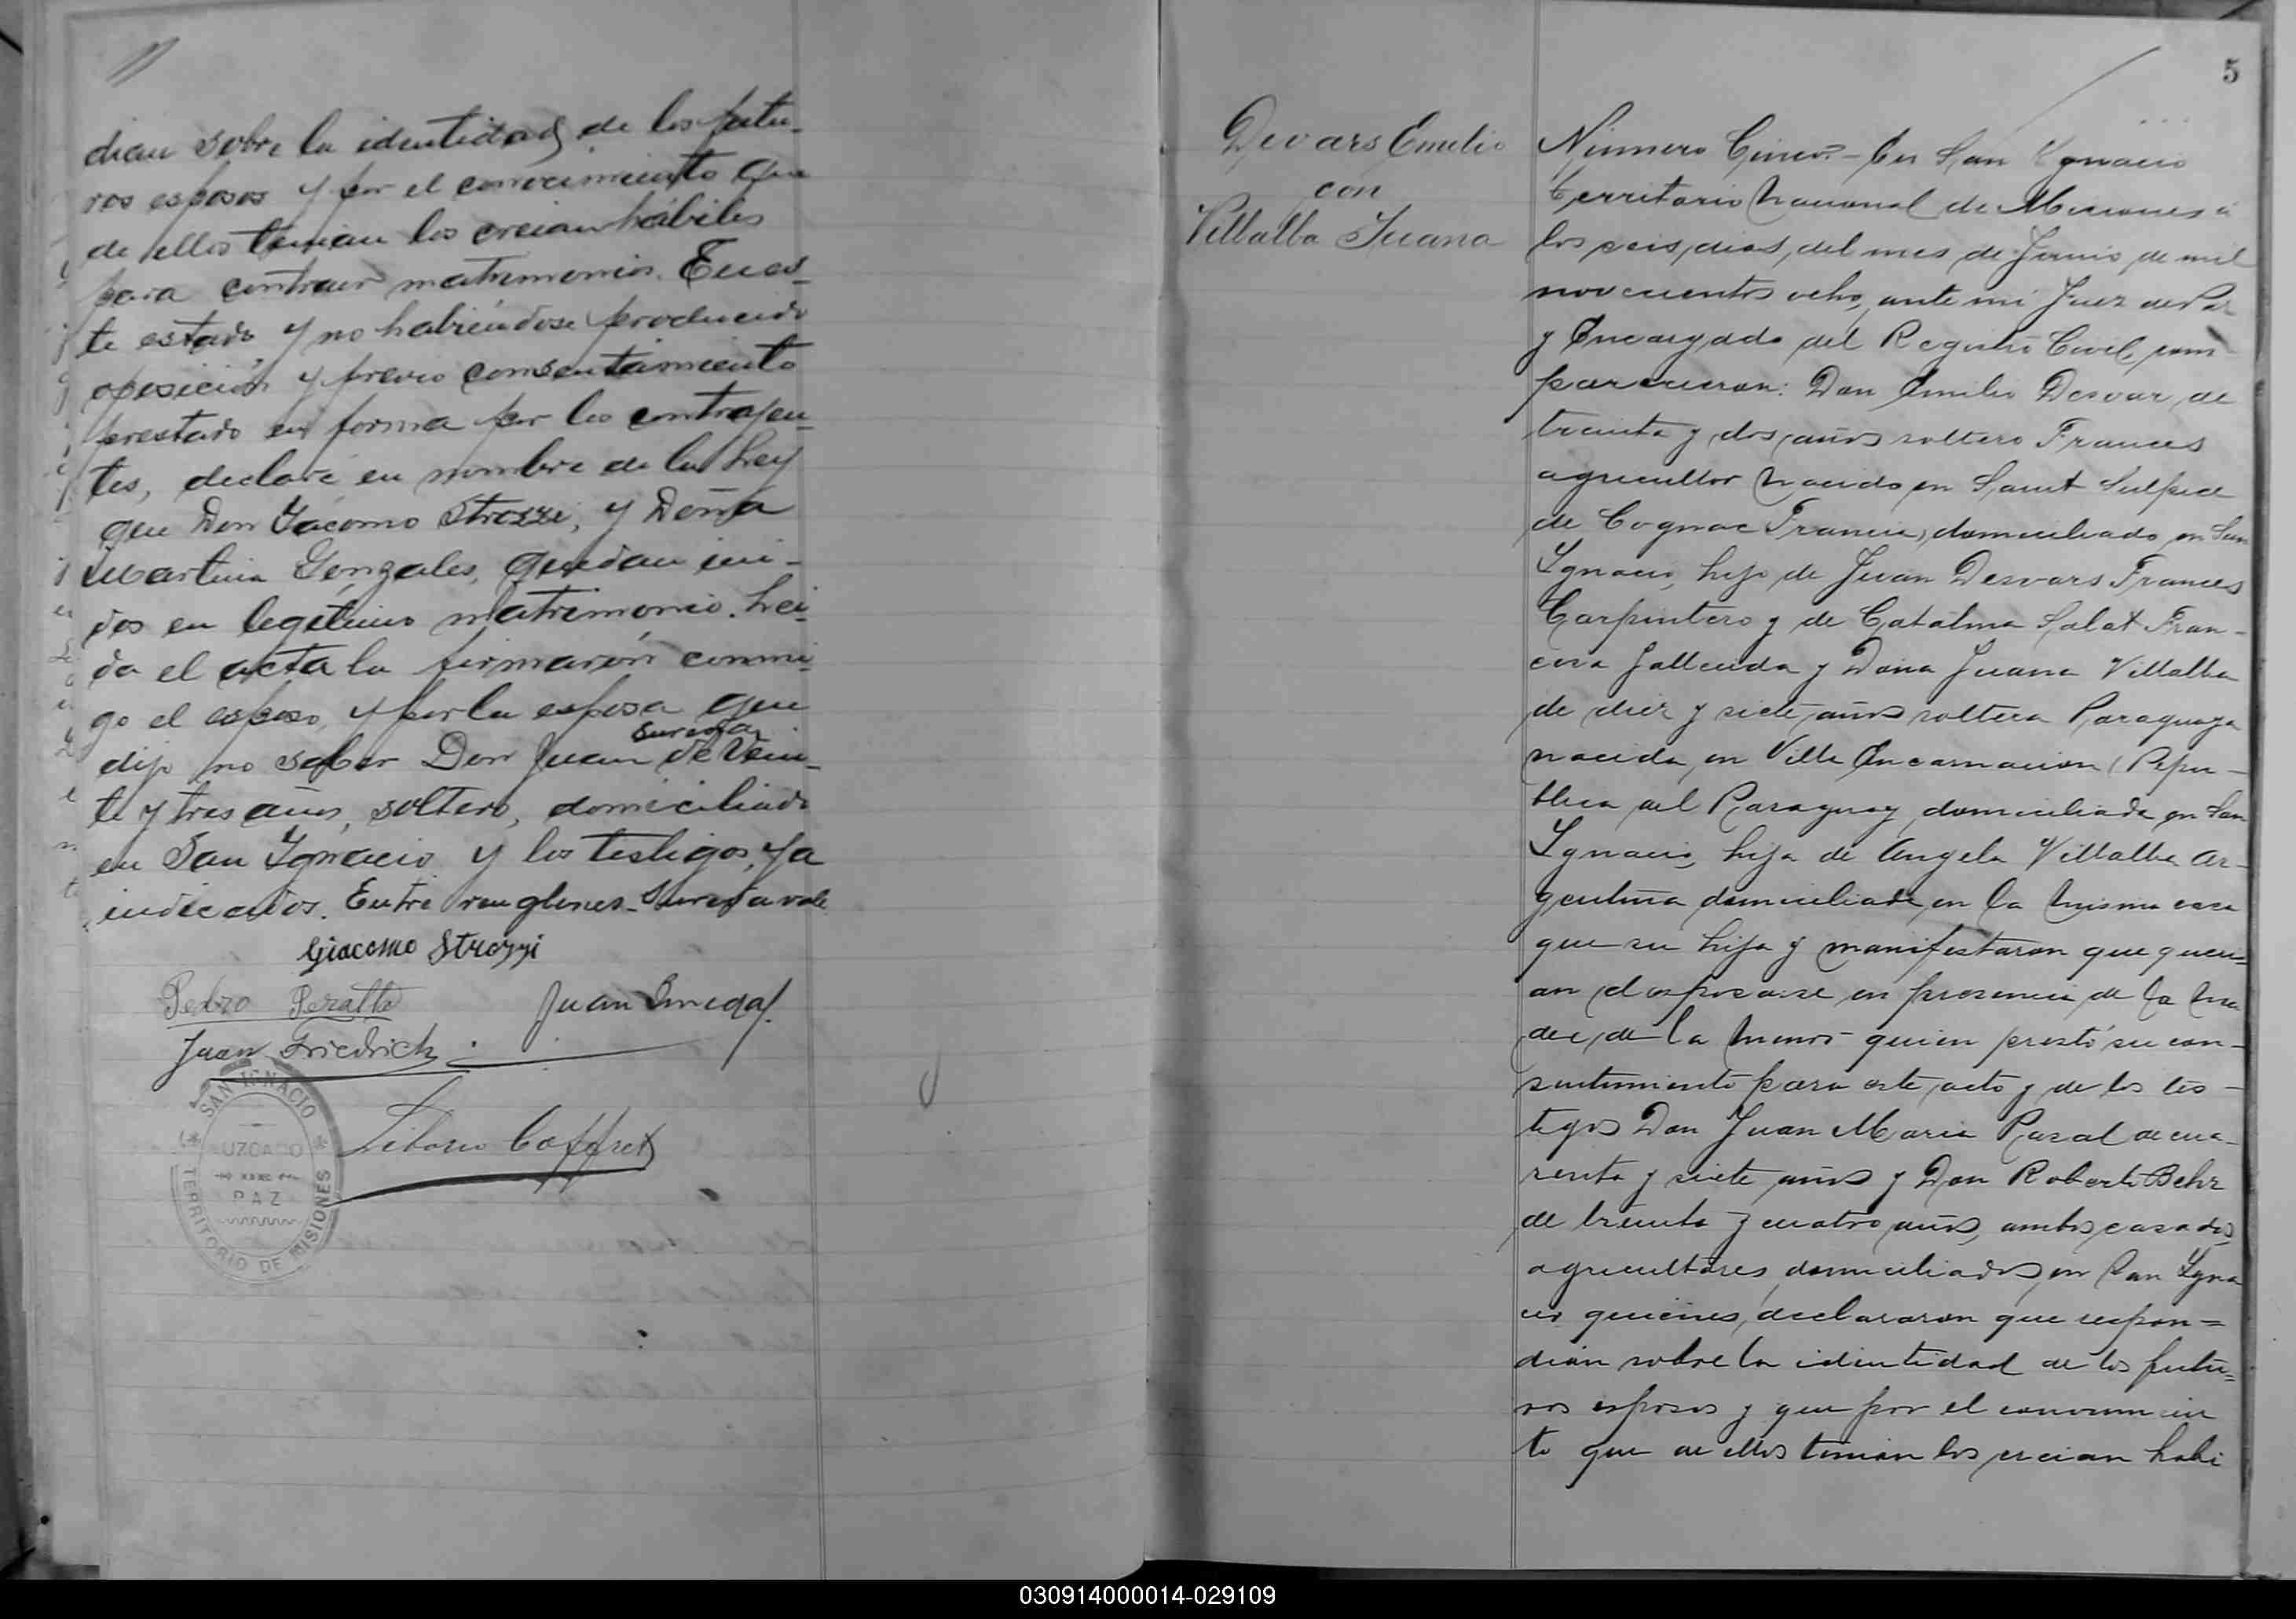 dian sobre la identidad de los futu-
ros esposos y por el conocimiento que
de ellos tenian los creian hábiles
para contraer matrimonio. En es-
te estado y no habiéndose producido
oposición y previo consentimiento
prestado en forma por los contrayen-
tes, declaré en nombre de la Ley
que Don Yacomo Strozzi, y Doña
Martina Gonzales, quedan uni-
dos en legitimo matrimonio. Lei-
da el acta la firmarón conmi-
go el esposo, y por la esposa que
dijo no saber Don Juan de Vein-
te y tres años, soltero, domiciliado
en San Ygnacio y los testigos, ya
indicados. Entre renglones vale
Giacomo Strozzi
Pedro Peralta
Juan
Juan Friedrich
SAN IGNACIO
JUZGADO
DE
PAZ
TERRITORIO DE MISIONES
5
Devars Emilio
con
Villalba Juana
Número Cinco.- En San Ygnacio
Territorio Nacional de Misiones á
los seis dias del mes de Junio de mil
novecientos ocho, ante mi Juez de Paz
y Encargado del Registro Civil, com-
parecieron: Don Emilio Desvar, de
treinta y dos años soltero Frances
agricultor nacido en Saint Sulpice
de Cognac Francia, domiciliado en San
Ygnacio, hijo de Juan Desvars Frances
Carpintero y de Catalina Salat Fran-
cesa fallecida y Doña Juana Villalba
de diez y siete años soltera Paraguaya
nacida en Villa Encarnacion (Repu-
blica del Paraguay domiciliada en San
Ygnacio, hija de Angela Villalba ar-
gentina domiciliada en la misma casa
que su hija y manifestaron que queri=
an desposarse en presencia de la ma
dre de la menor quien prestó su con-
sentimiento para este acto y de los tes-
tigos Don Juan Maria de cua-
renta y siete años y Don Roberto Behr
de treinta y cuatro años, ambos casados,
agricultores, domiciliados en San Ygna
cio quienes, declararon que respon=
dian sobre la identidad de los futu=
ros esposos y que por el conocimien
to que de ellos tenian los creian habi
030914000014-029109